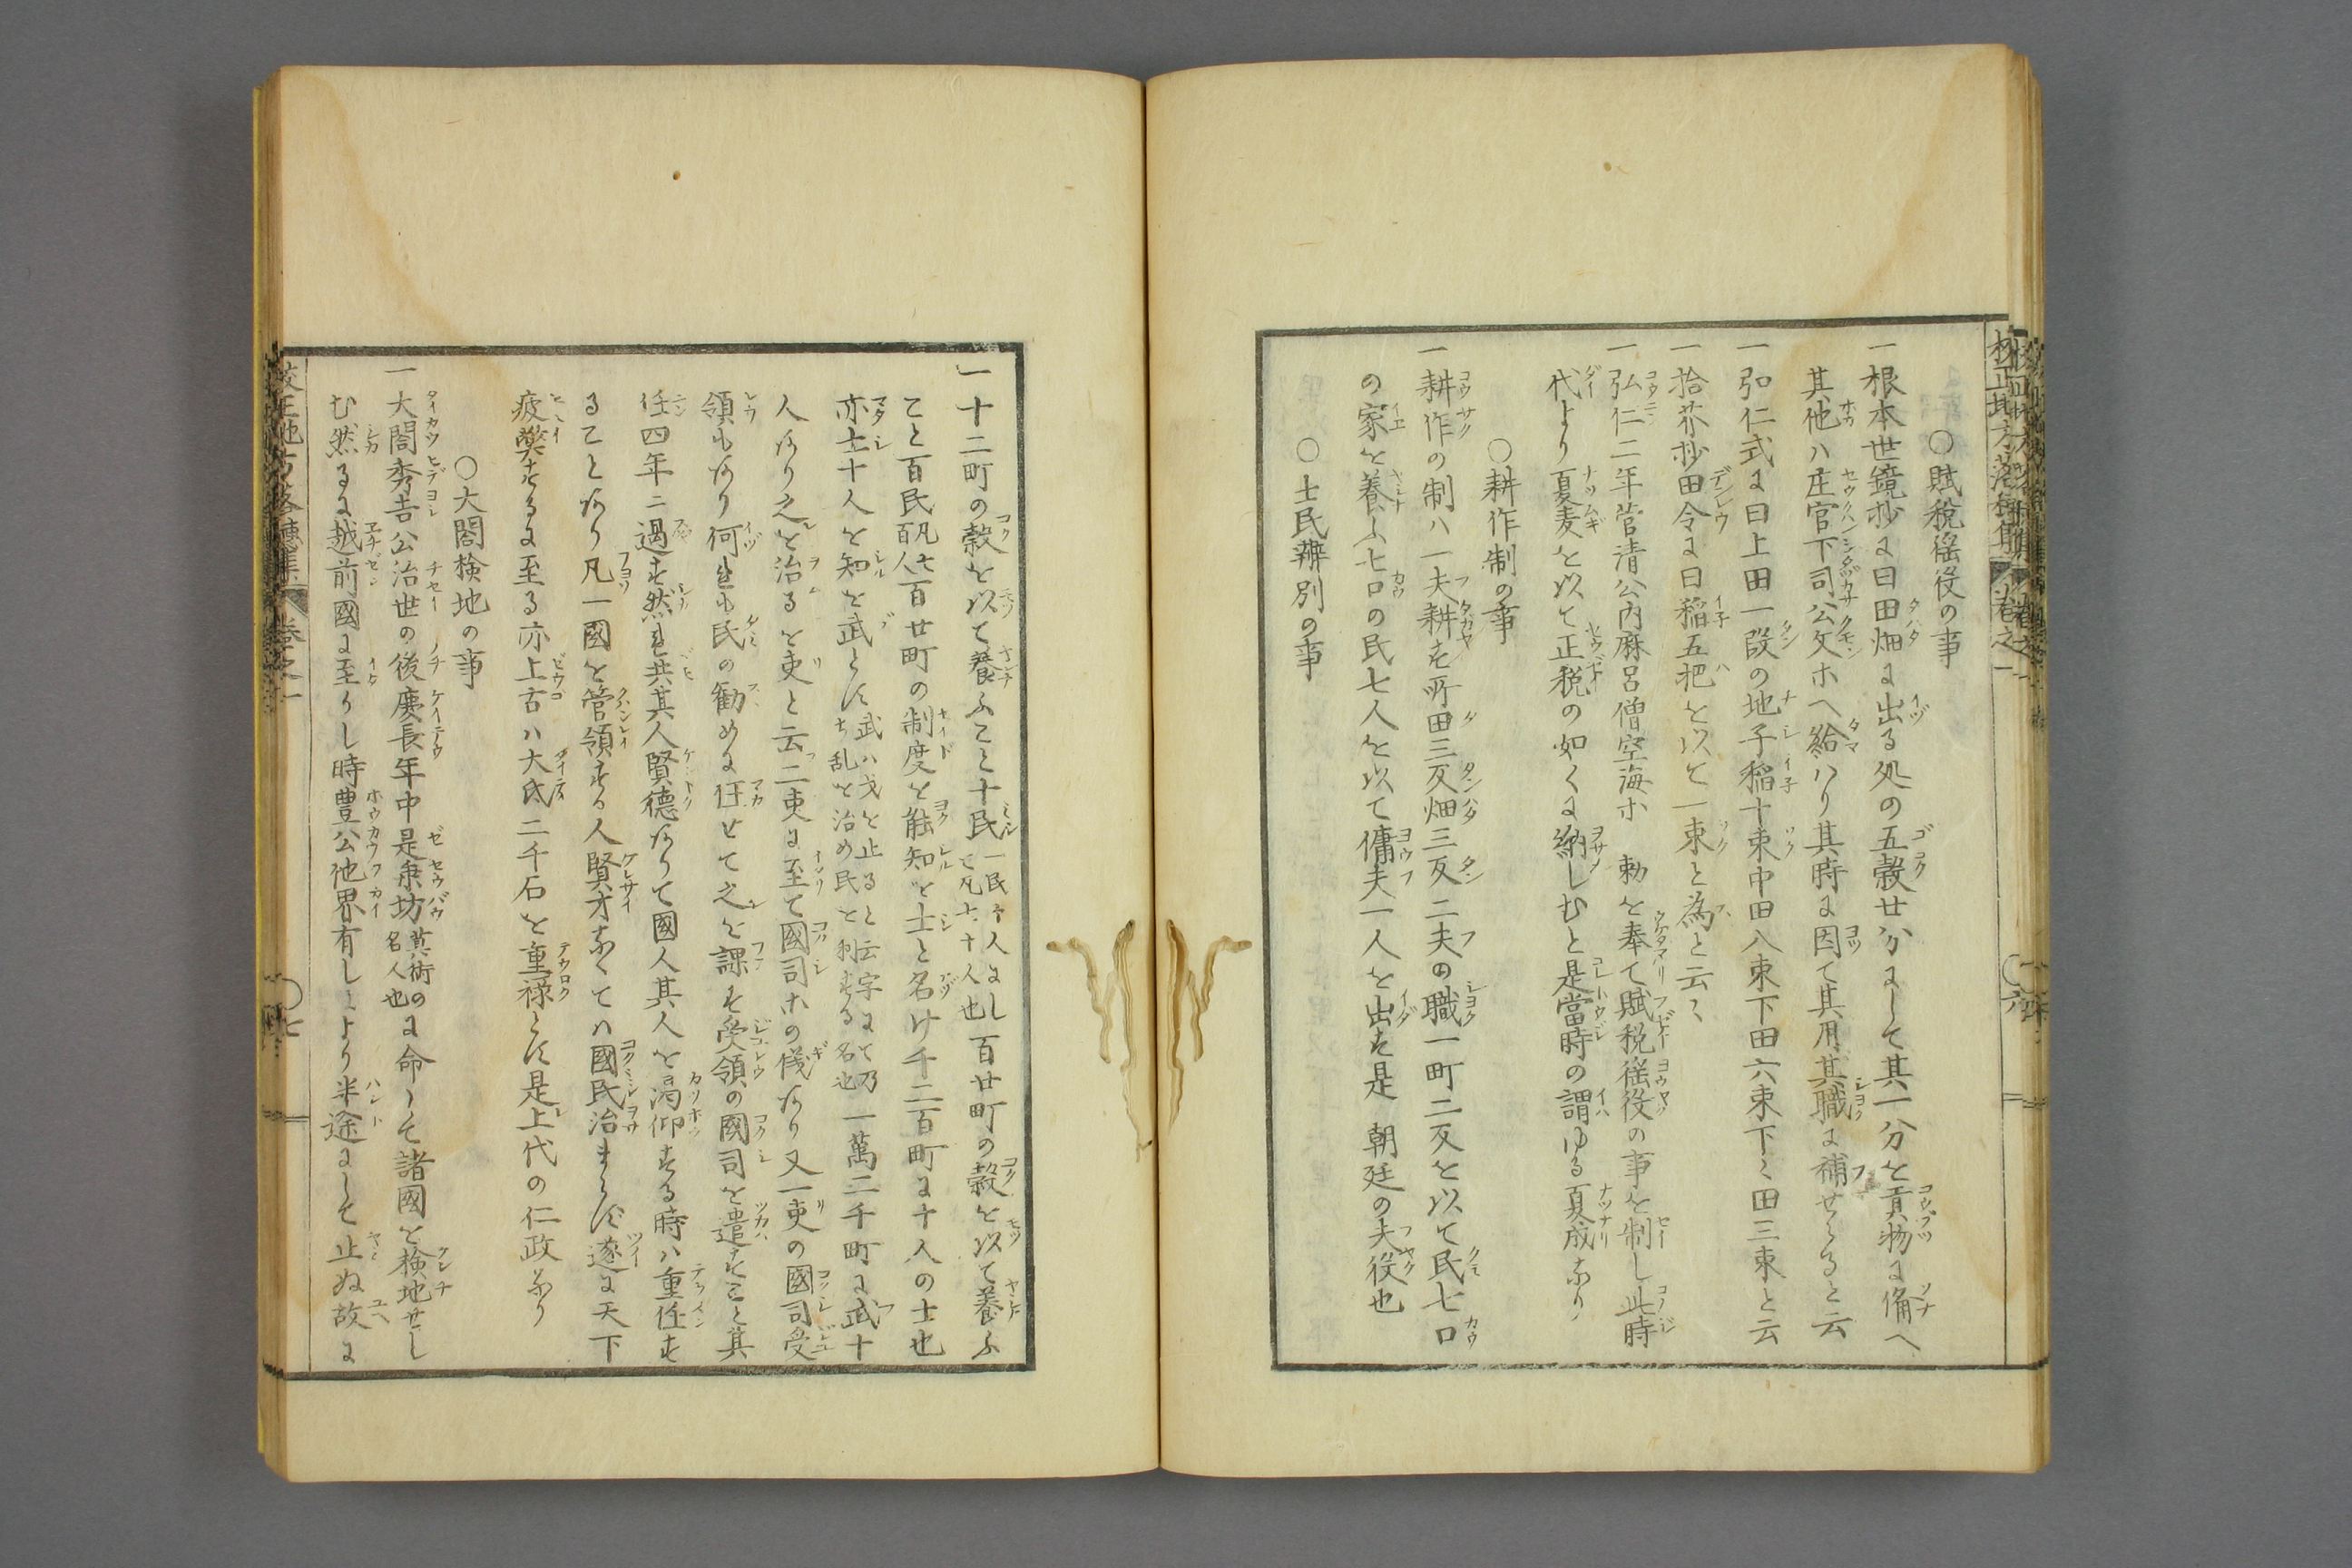 〇賦税徭役の事
一根本世鏡抄に曰田畑に出る処の五穀廿分にして其一分を貢物に備へ
其他ハ庄官下司公文ホへ給ハり其時に因て其用其職に補せらると云
一弘仁式に曰上田一段の地子稲十束中田八束下田六束下〻田三束と云
一拾芥抄田令に曰稲五把を以て一束と為と云〻
一弘仁二年菅清公内麻呂僧空海ホ 勅を奉て賦税徭役の事を制し此時
代より夏麦を以て正税の如くに納しむと是當時の謂ゆる夏成なり
〇耕作制の事
一耕作の制ハ一夫耕す所田三反畑三反二夫の職一町二反を以て民七口
の家を養ふ七口の民七人を以て傭夫一人を出す是 朝廷の夫役也
〇士民辨別の事
一十二町の穀を以て養ふこと十民一民十人にして凡七十人也百廿町の穀を以て養ふ
こと百民凡七百人百廿町の制度を能知を士と名け千二百町に十人の士也
亦士十人を知を武とす武ハ戈を止ると云字にて乃ち乱を治め民を利する名也一萬二千町に武十
人あり之を治るを吏と云二吏に至て國司ホの儀あり又一吏の國司受
領もあり何れも民の勧めに任せて之を課す受領の國司を遣すこと其
任四年ニ過す然れ共其人賢徳ありて國人其人を渇仰する時ハ重任す
ることあり凡一國を管領する人賢才なくてハ國民治まらす遂に天下
疲弊するに至る亦上古ハ大氐二千石を重禄とす是上代の仁政なり
〇大閤検地の事
一大閤秀吉公治世の後慶長年中是乗坊算術の名人也に命して諸國を検地せし
む然るに越前國に至りし時豊公他界有しより半途にして止ぬ故に
校正地方落穂集 巻之一
〇六
校正地方落穂集 巻之一
〇七